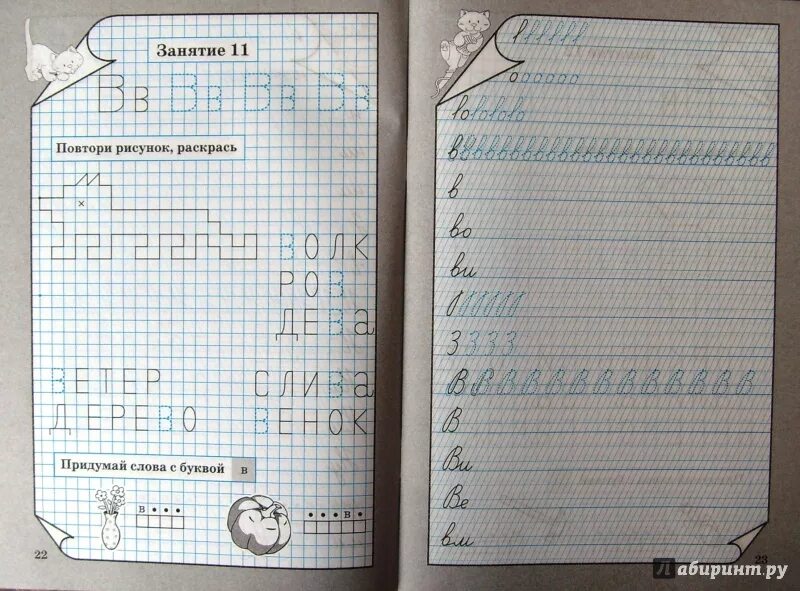 Занятие 11
Вв Вв Вв Вв
Повтори рисунок, раскрась
ВОЛК
РОВ
ДЕВа
ВЕТЕР СЛИВа
ДЕРЕВО ВЕНОК
Придумай слова с буквой в
в • • •
• • • в •
22
о о о о о о о
в
во
ви
З З З З
В В В В В В В В В В В В В
В
Ви
Ве
вм
23
Лабиринт.ру